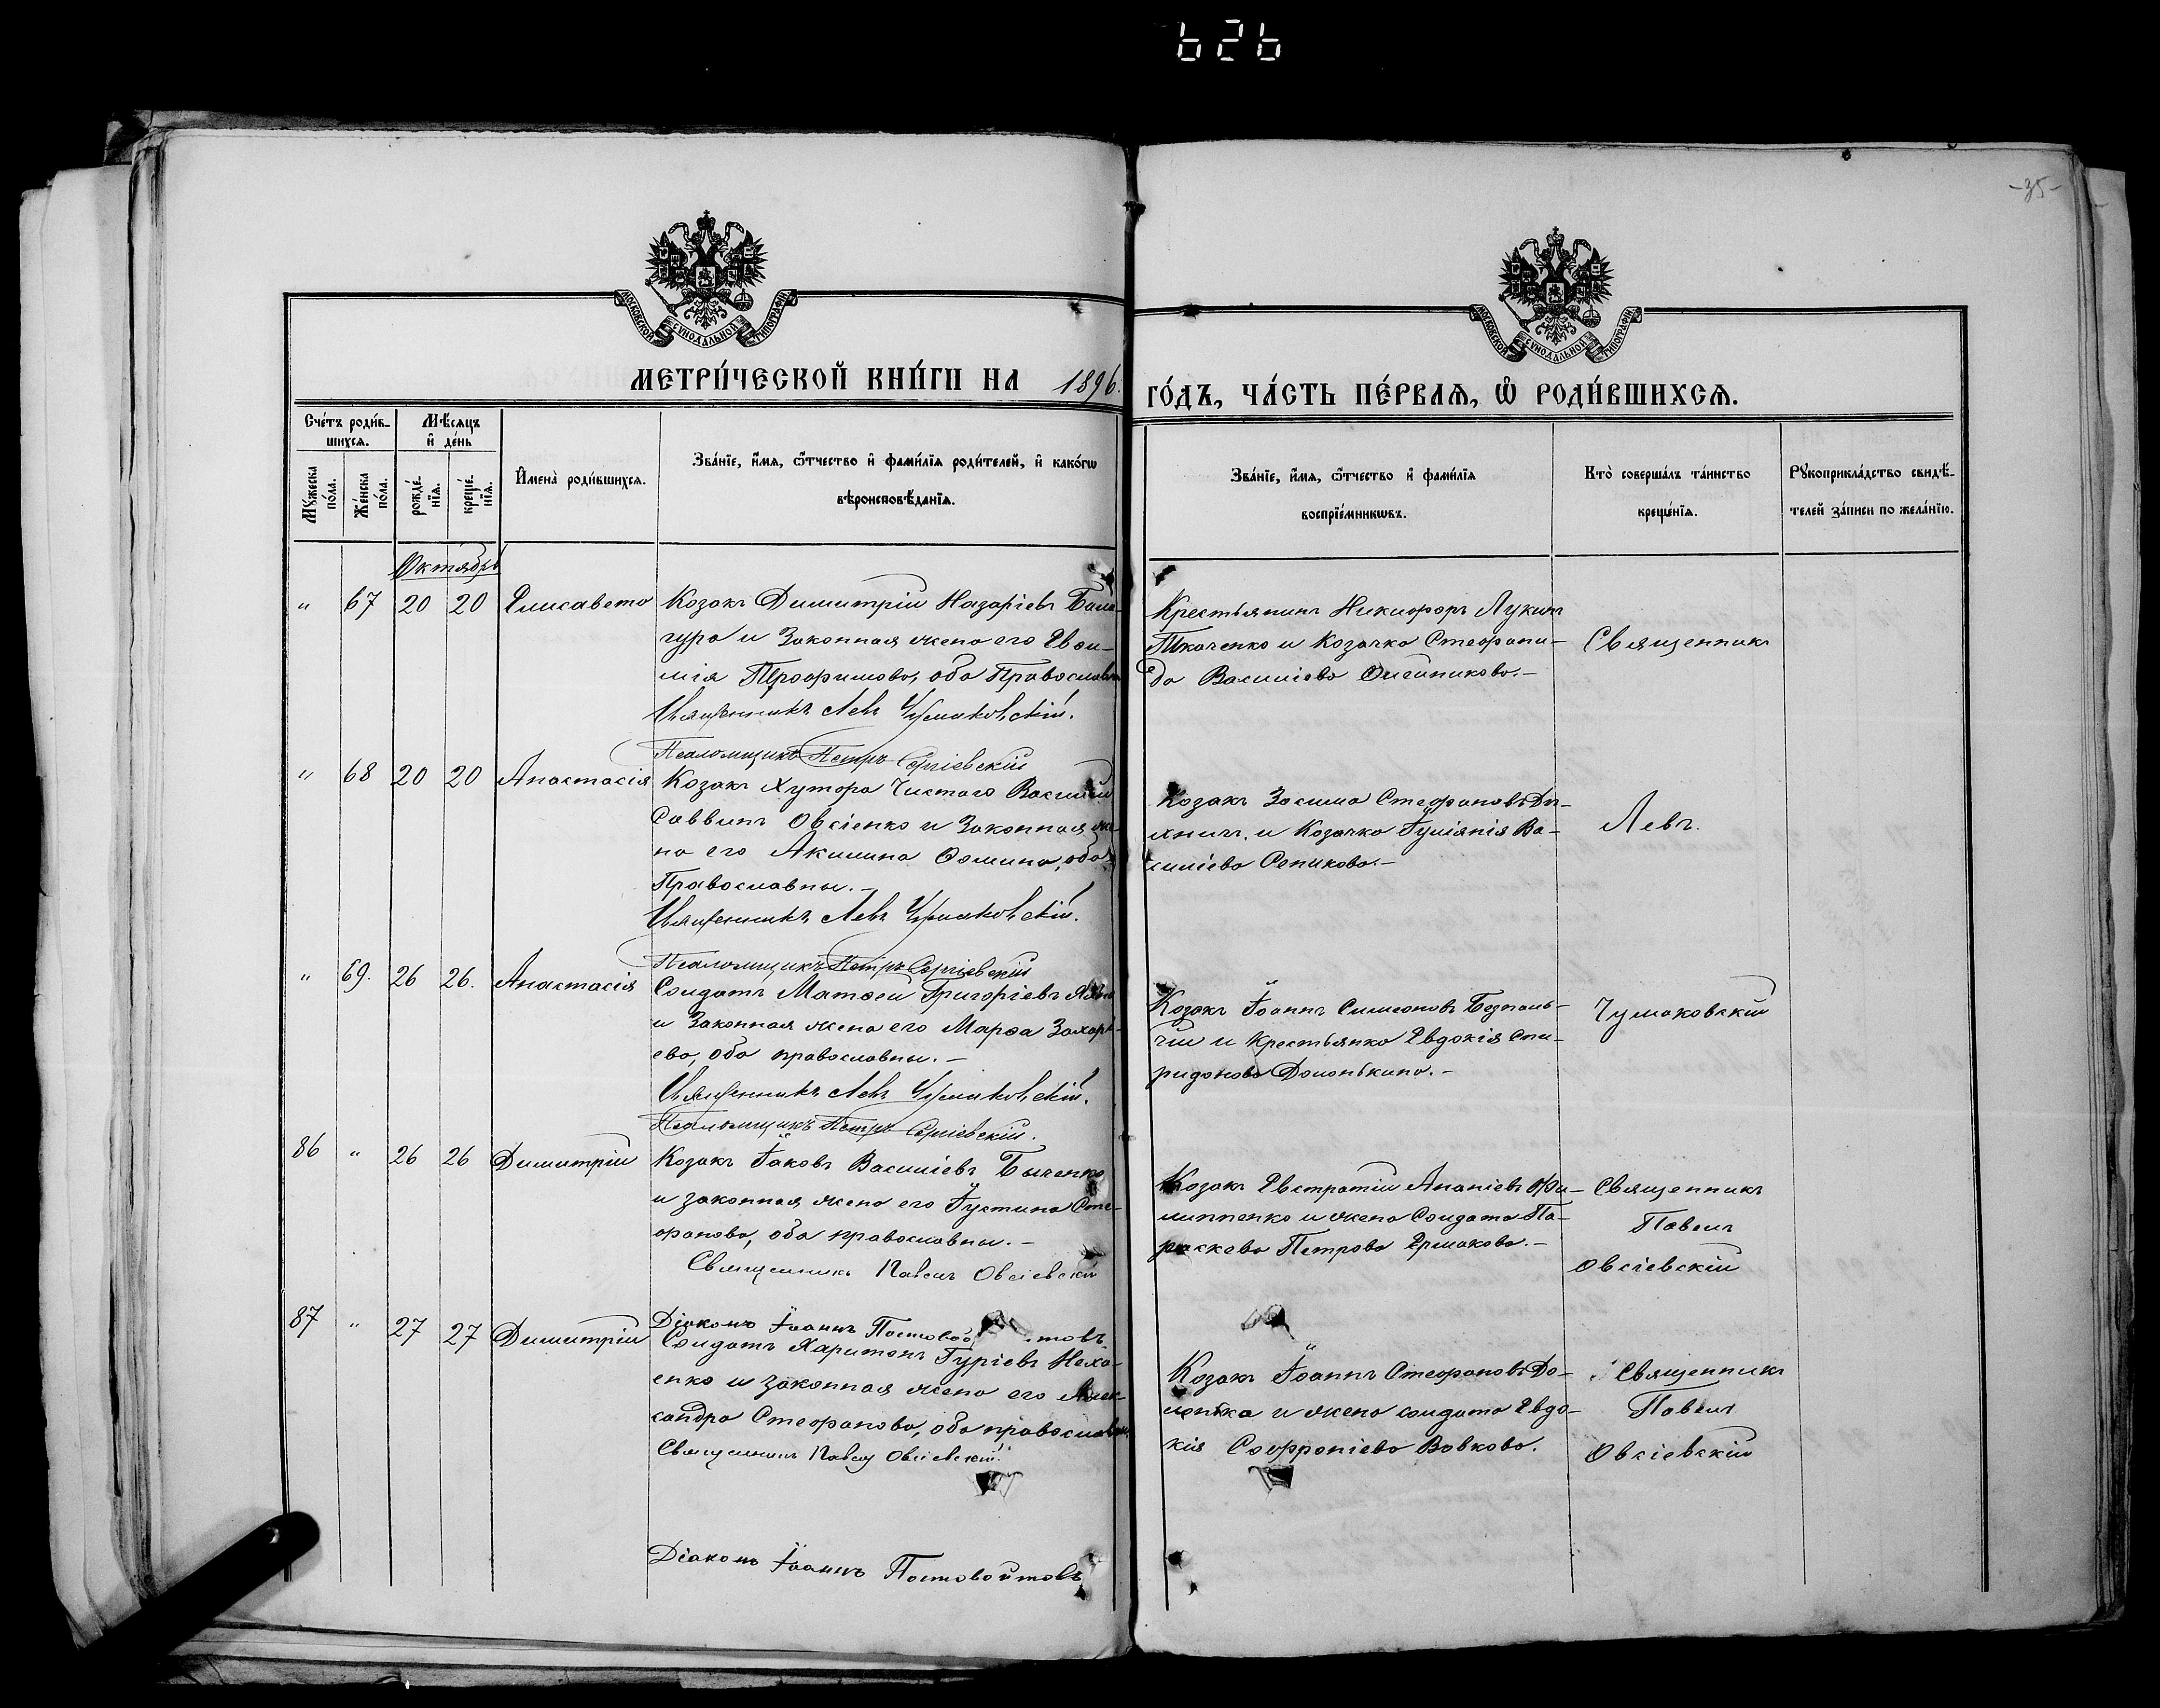 626
-35-
МОСКОВСКОЙ СѴНОДАЛЬНОЙ ТИПОГРАФІИ
МОСКОВСКОЙ СѴНОДАЛЬНОЙ ТИПОГРАФІИ
МЕТРИ́ЧЕСКОЙ КНИ́ГИ НА 1896.
ГО́ДЪ, ЧА́СТЬ ПЕ́РВАѦ, Ѽ РОДИ́ВШИХСѦ.
Сче́тъ роди́в-
шихсѧ.
Мѣ́сѧцъ
и҆ де́нь
Мꙋ́жеска
по́ла.
Же́нска
по́ла.
рожде́-
нїѧ.
креще́-
нїѧ.
И҆мена̀ роди́вшихсѧ.
Зва́нїе, и҆́мѧ, ѻ҆́тчество и҆ фами́лїѧ роди́телей, и҆ како́гѡ
вѣроисповѣ́данїѧ.
Зва́нїе, и҆́мѧ, ѻ҆́тчество и҆ фами́лїѧ
воспрїе́мникѡвъ.
Кто̀ соверша́лъ та́инство
креще́нїѧ.
Рꙋкоприкла́дство свидѣ́-
телей за́писи по жела́нїю.
Октябрь
" 67 20 20 Елисавета
Козакъ Димитрій Назаріевъ Бала-
гура и Законная жена его Евѳи-
мія Трофимова, оба Православны
Священникъ Левъ Чумаковскій.
Псаломщикъ Петръ Сергіевскій
Крестьянинъ Никифоръ Лукинъ
Ткаченко и Козачка Стефани-
да Василіева Олейникова.-
Священникъ
" 68 20 20 Анастасія
Козакъ Хутора Чистаго Василій
Саввинъ Овсіенко и Законная же-
на его Акилина Ѳомина, оба
Православны.-
Священникъ Левъ Чумаковскій.
Псаломщикъ Петръ Сергіевскій
Козакъ Зосима Стефановъ
и Козачка Іуліянія Ва-
силіева Репикова.-
Левъ.
" 69. 26 26. Анастасія
Солдатъ Матѳей Григоріевъ
и Законная жена его Марѳа Захарі-
ева, оба православны.-
Священникъ Левъ Чумаковскій.
Псаломщикъ Петръ Сергіевскій.
Козакъ Іоаннъ Симеоновъ Безпаль-
чій и Крестьянка Евдокія Спи-
ридонова Долонькина.-
Чумаковскій
86 " 26 26 Димитрій
Козакъ Іаковъ Василіевъ Быченко
и законная жена его Іустина Сте-
фанова, оба православны.-
Священникъ Павелъ Овсіевскій
Діаконъ Іоаннъ Постовой товъ
Козакъ Евстратій Ананіевъ Фи-
липпенко и жена Солдата Па-
раскева Петрова Ермакова.-
Священникъ
Павелъ
Овсіевскій
87 " 27 27 Димитрій
Солдатъ Харитонъ Гуріевъ Неха-
енко и законная жена его Алек-
сандра Стефанова, оба православны.
Священникъ Павелъ Овсіевскій.
Діаконъ Іоаннъ Постовойтовъ
Козакъ Іоаннъ Стефановъ До-
ленка и жена солдата Евдо-
кія Софроніева Вовкова.
Священникъ
Павелъ
Овсіевскій